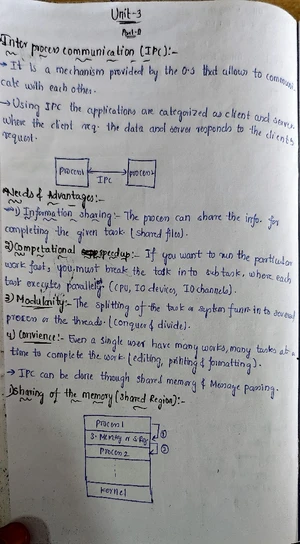 Unit-3
Part-B
Inter process communication (IPC):-
→ It is a mechanism provided by the O.S that allows to communi
cate with each other.
→ Using IPC the applications are categorized as client and server
where the client req. the data and server responds to the client's
request.
process1 process2
IPC
Needs & Advantages:-
1) Information sharing:- The process can share the info. for
completing the given task (shared files).
2) Computational speedup:- If you want to run the particular
work fast, you must break the task in to subtask, where each
task executes parallely (CPU, IO devices, IO channels).
3) Modularity:- The splitting of the task or system funn in to several
process or the threads. (conquer & divide).
4) Convience:- Even a single user have many works, many tasks at a
time to complete the work (editing, printing & formatting).
→ IPC can be done through shared memory & Message passing.
i) Sharing of the memory (shared Region):-
Process 1
S. Memory or S. Reg
①
Process 2
②
Kernel